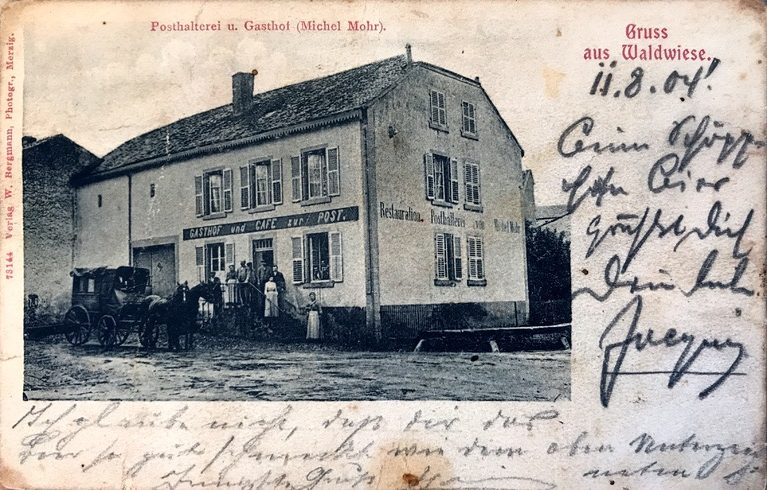 Posthalterei u. Gasthof (Michel Mohr).
Gruss
aus Waldwiese.
11.8.04!
Beim Schöpp-
chen Bier
grüßt Dich
Dein lieber
Jacques
73144 Verlag W. Bergmann, Photogr., Merzig.
GASTHOF und CAFE zur POST.
Restauration. Posthalterei von Michel Mohr
Ich glaube nicht, daß dir das
Bier so gut schmeckt wie dem oben Unterzeich
neten